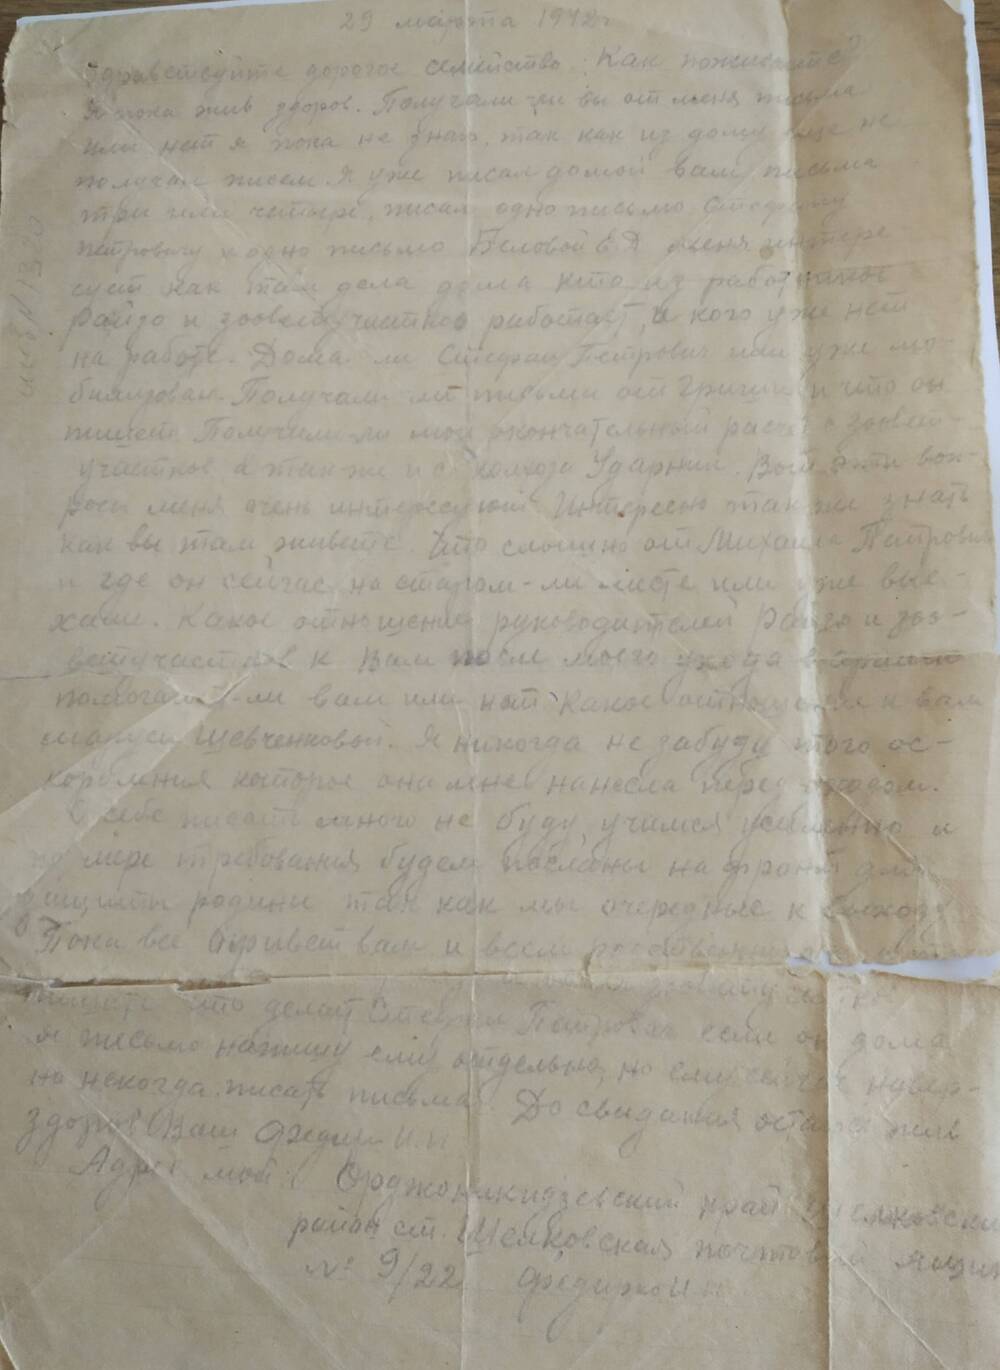 29 марта 1942 г
Здравствуйте дорогое семейство. Как поживаете?
Я пока жив здоров. Получали ли вы от меня письма
или нет я пока не знаю, так как из дому еще не
получал писем. Я уже писал домой вам письма
три или четыре, писал одно письмо Стефану
Петровичу и одно письмо Беловой Е.Я меня интере
сует как там дела дома кто из работников
Райзо и зооветучастков работает, и кого уже нет
на работе. Дома ли Стефан Петрович или уже мо-
билизован. Получали ли письма от Гриши и что он
пишет. Получили-ли мой окончательный расчет с зоовет-
участков а так же и с колхоза Ударник. Вот эти воп-
росы меня очень интересуют. Интересно так же знать
как вы там живете. Что слышно от Михаила Петровича
и где он сейчас на старом-ли месте или уже вые-
хали. Какое отношение руководителей Райзо и зоо-
ветучастков к Вам после моего ухода
помогают-ли вам или нет. Какое отношение к вам
Маруси Шевченковой. Я никогда не забуду этого ос-
корбления которое она мне нанесла перед отходом.
О себе писать много не буду, учимся усиленно и
по мере требования будем посланы на фронт для
защиты родины так как мы очередные к выходу
Пока все Привет вам и всем родственникам
пишите что делает Стефан Петрович если он дома
я письмо напишу ему отдельно, но ему сейчас навер-
но некогда писать письма. До свидания остаюсь жив
здоров Ваш И.И
Адрес мой: Орджоникидзевский край Шелковской
район ст. Шелковская почтовый ящик
№ 9/22 Федирко И.И.
инв N 1320